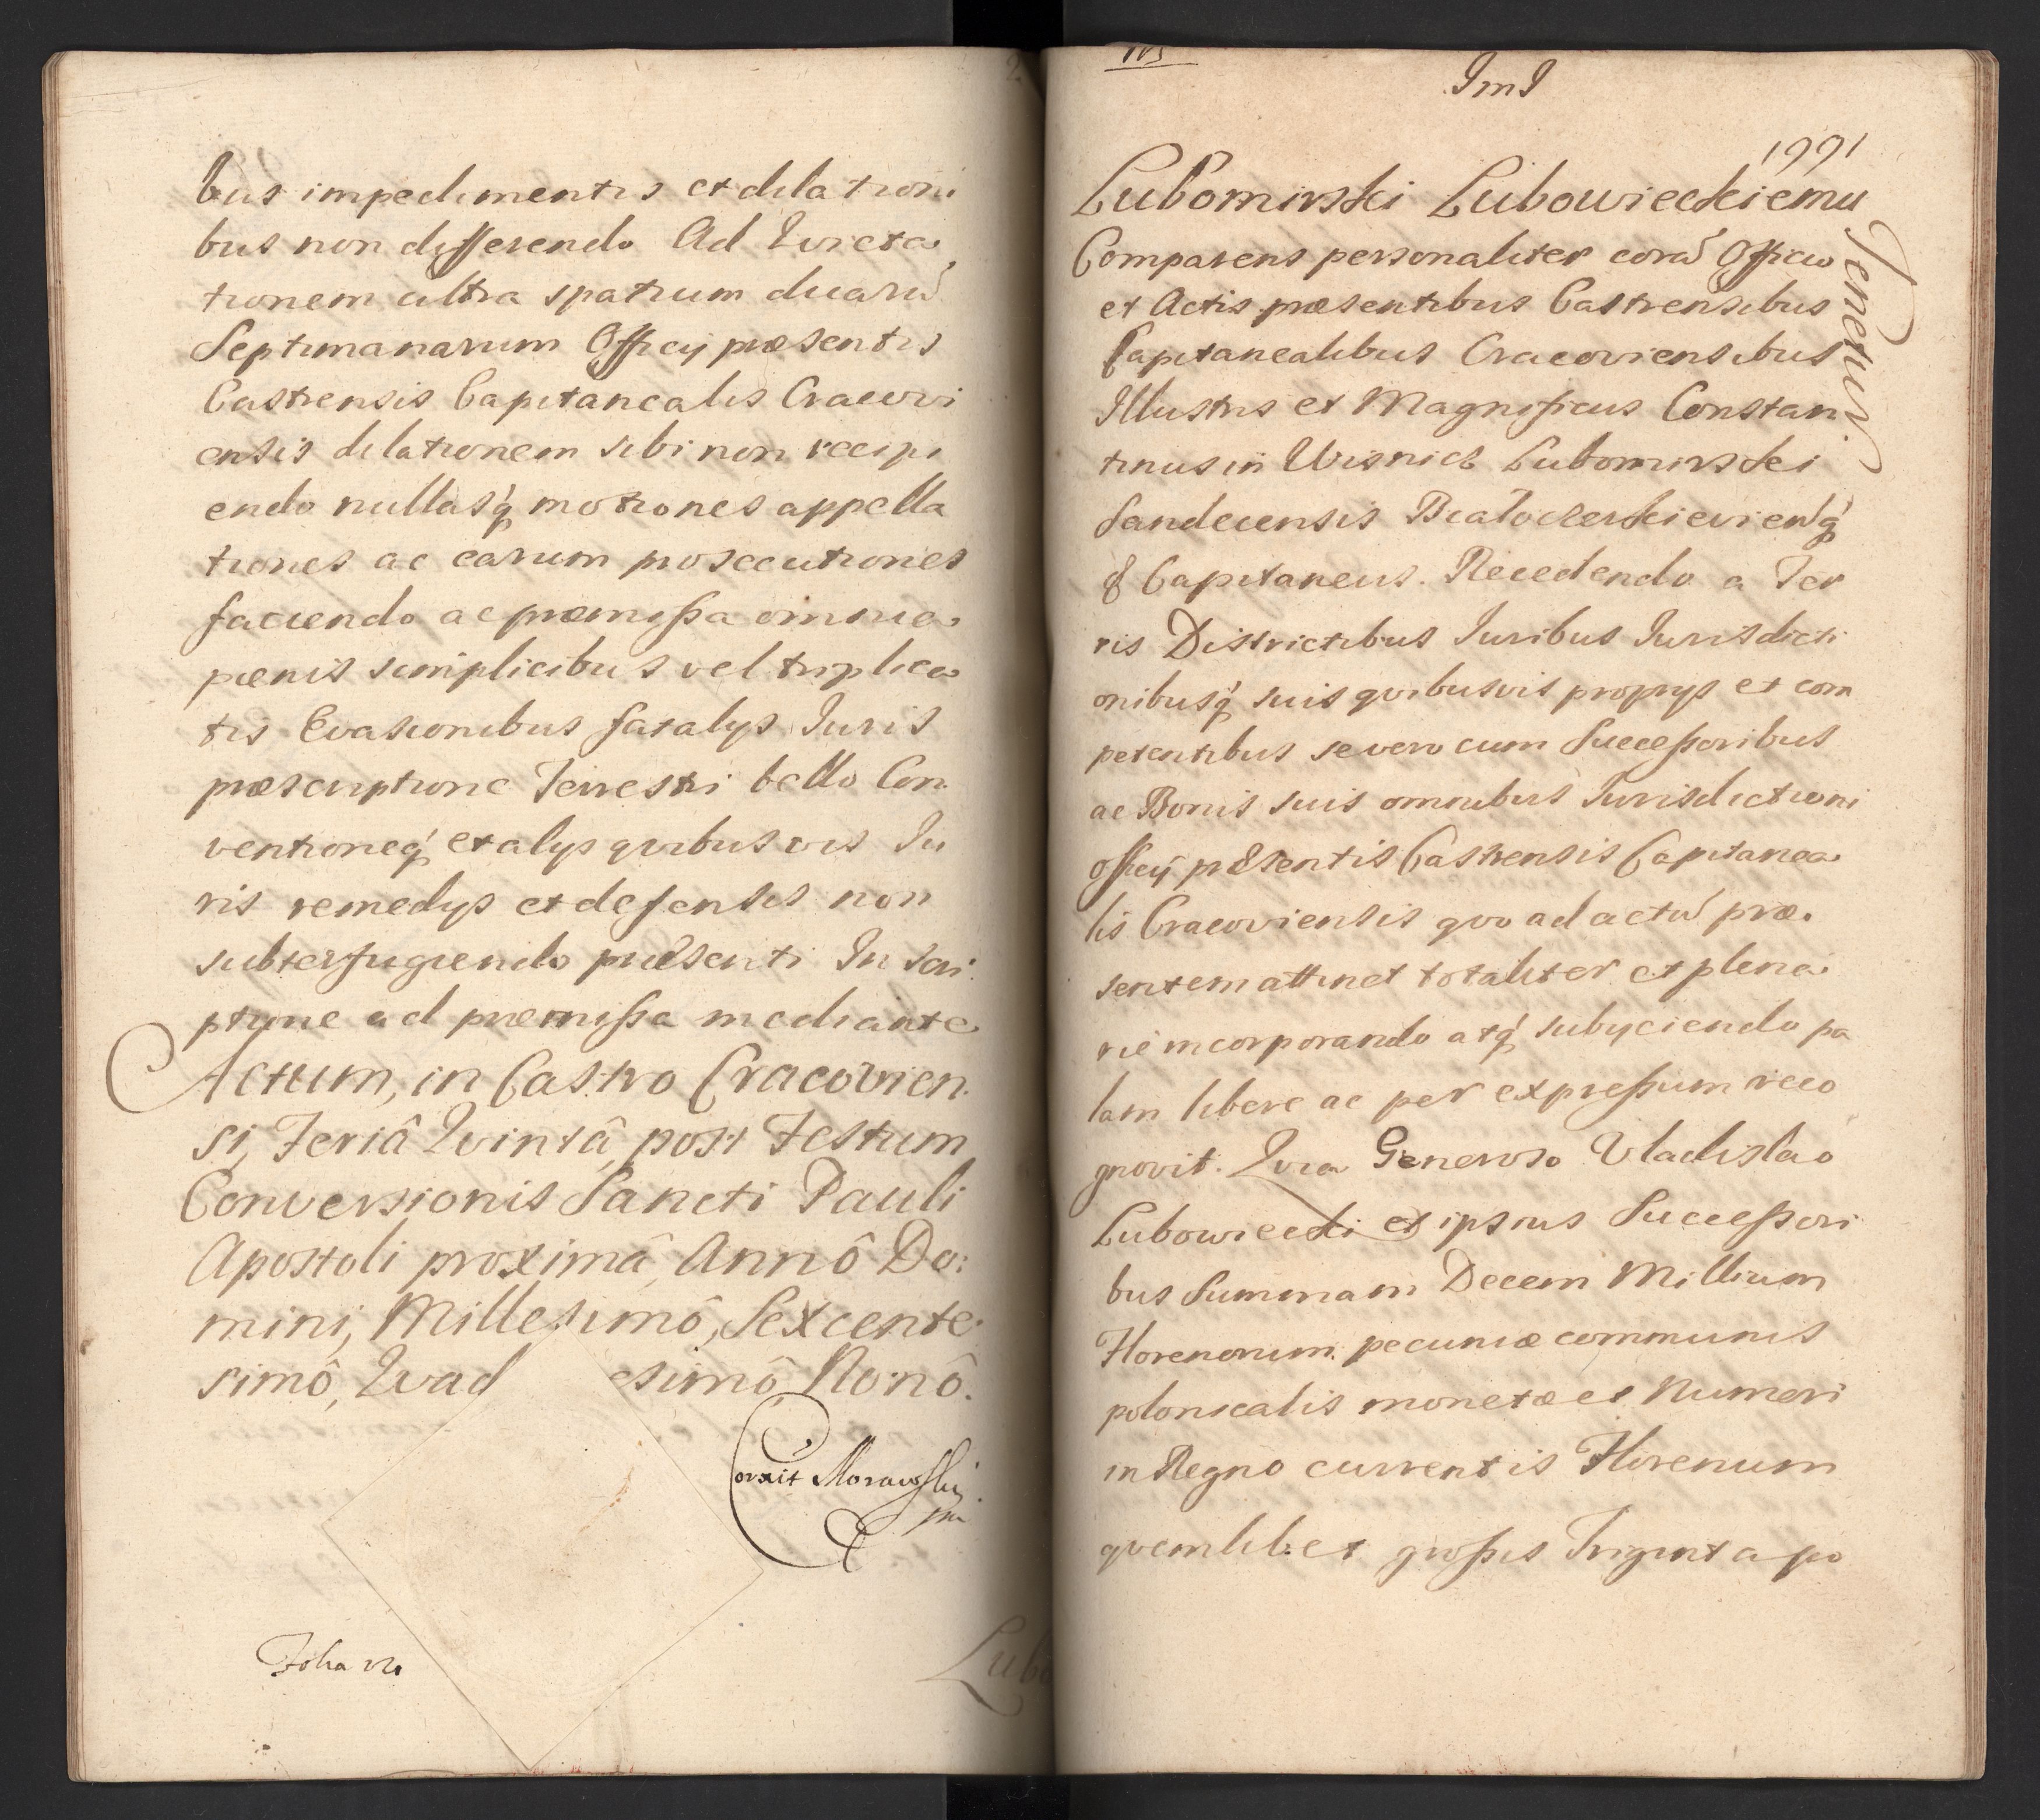 bus impedimentis et dilationi
bus non differendo Ad Evicta
tionem ultra spatium duarũ
Septimanarum Officij præsentis
Castrensis Capitanealis Cracovi
ensis dilationem sibi non recipi
endo nullasq́ motiones appella
tiones ac earum prosecutiones
faciendo ac præmißa omnia
pænis simplicibus vel triplica
tis Evasionibus fatalys Iuris
præscriptione Terrestri bello Con
ventioneq́ et alys quibusvis Iu
ris remedys et defensis non
subterfugiendo præsenti Inscri
ptione ad præmißa mediante
Actum, in Castro Cracovien
si, Feriâ Qvintâ, post Festum
Conversionis Sancti Pauli
Apostoli proximâ, Annô Do:
mini, Millesimô, Sexcente
simô, Qvad esimô Nonô.
Corrxit Morawski
Johan
Lubo
ImI
1991
Lubomirski Lubowieckiemu
Comparens personaliter corã Officio
et Actis præsentibus Castrensibus
Capitanealibus Cracoviensibus
Illustris et Magnificus Constan
tinus in Wisnicz Lubomirski
Sandecensis Białocerkievienq́
& Capitaneus. Recedendo a Ter
ris Districtibus Iuribus Iurisdicti
onibusq́ suis qvibusvis proprys et com
petentibus se vero cum Succeßoribus
ac Bonis suis omnibus Iurisdictioni
officij præsentis Castrensis Capitanea
lis Cracoviensis qvo ad actũ præ.
sentem attinet totaliter et plena
rie incorporando atq́ subyciendo pa
lam libere ac per expreßum reco
gnovit. Qvia Generoso Vladislao
Lubowiecki et ipsius Succeßori
bus Summam Decem Millium
Florenorum pecuniæ communis
polonicalis monetæ et Numeri
in Regno currentis Florenum
qvemlibet großis Triginta po